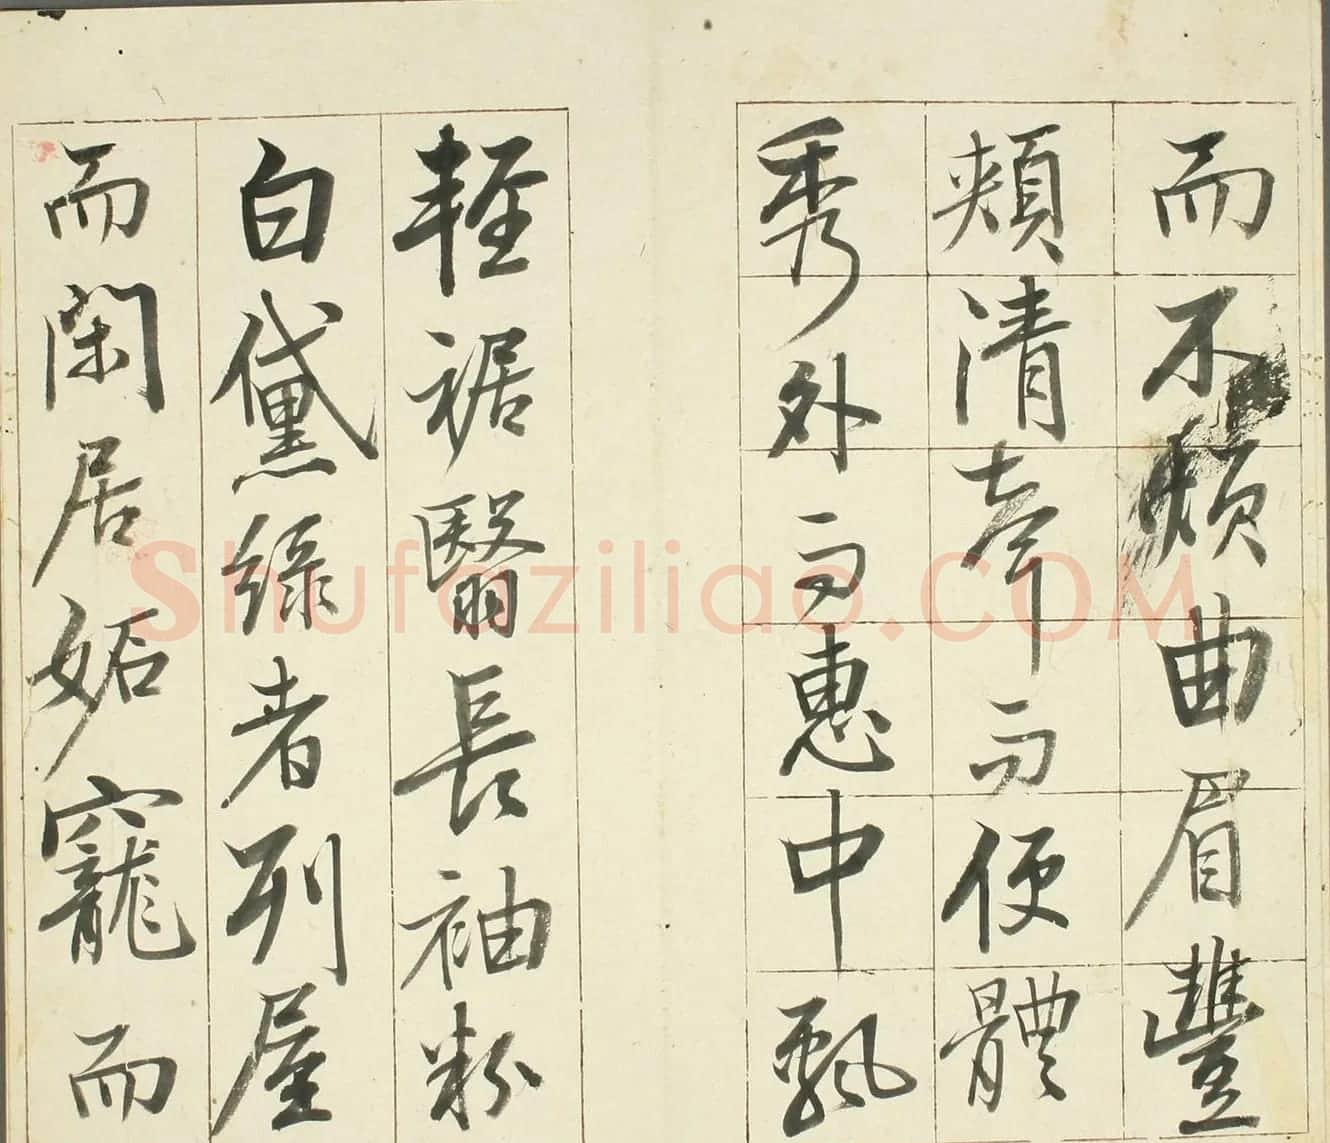 而不煩曲眉豐
頰清聲而便體
秀外而惠中飄
輕裾翳長袖粉
白黛綠者列屋
而閑居妬寵而
Shufaziliao.COM